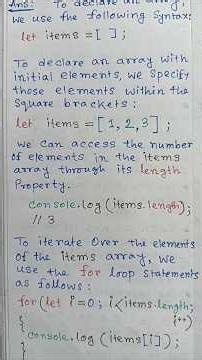 Ans: To declare an array,
we use the following Syntax:
let items = [ ];
To declare an array with
initial elements, we specify
those elements within the
square brackets:
let items = [1, 2, 3];
we can access the number
of elements in the items
array through its length
Property.
Console.log(items.length);
// 3
To iterate over the elements
of the items array, we
use the for loop statements
as follows:
for(let i=0; i<items.length;
i++)
{
Console.log (items[i]);